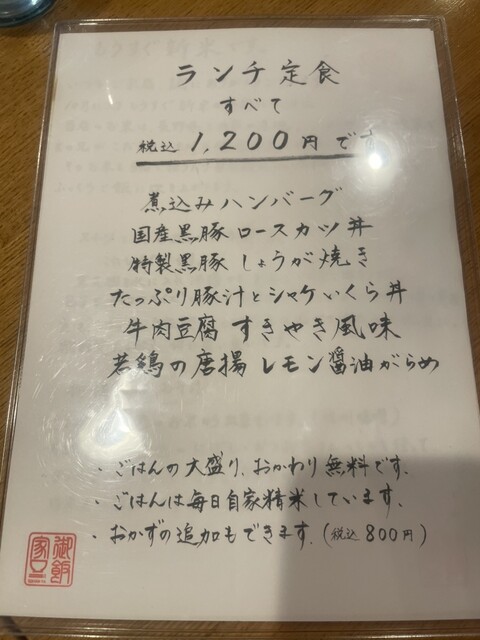 ランチ定食
すべて
税込 1,200円です
煮込みハンバーグ
国産黒豚 ロースカツ丼
特製黒豚 しょうが焼き
たっぷり豚汁とシャケいくら丼
牛肉豆腐 すきやき風味
若鶏の唐揚 レモン醤油がらめ
・ごはんの大盛り、おかわり無料です。
・ごはんは毎日自家精米しています。
・おかずの追加もできます。(税込 800円)
御飯
家